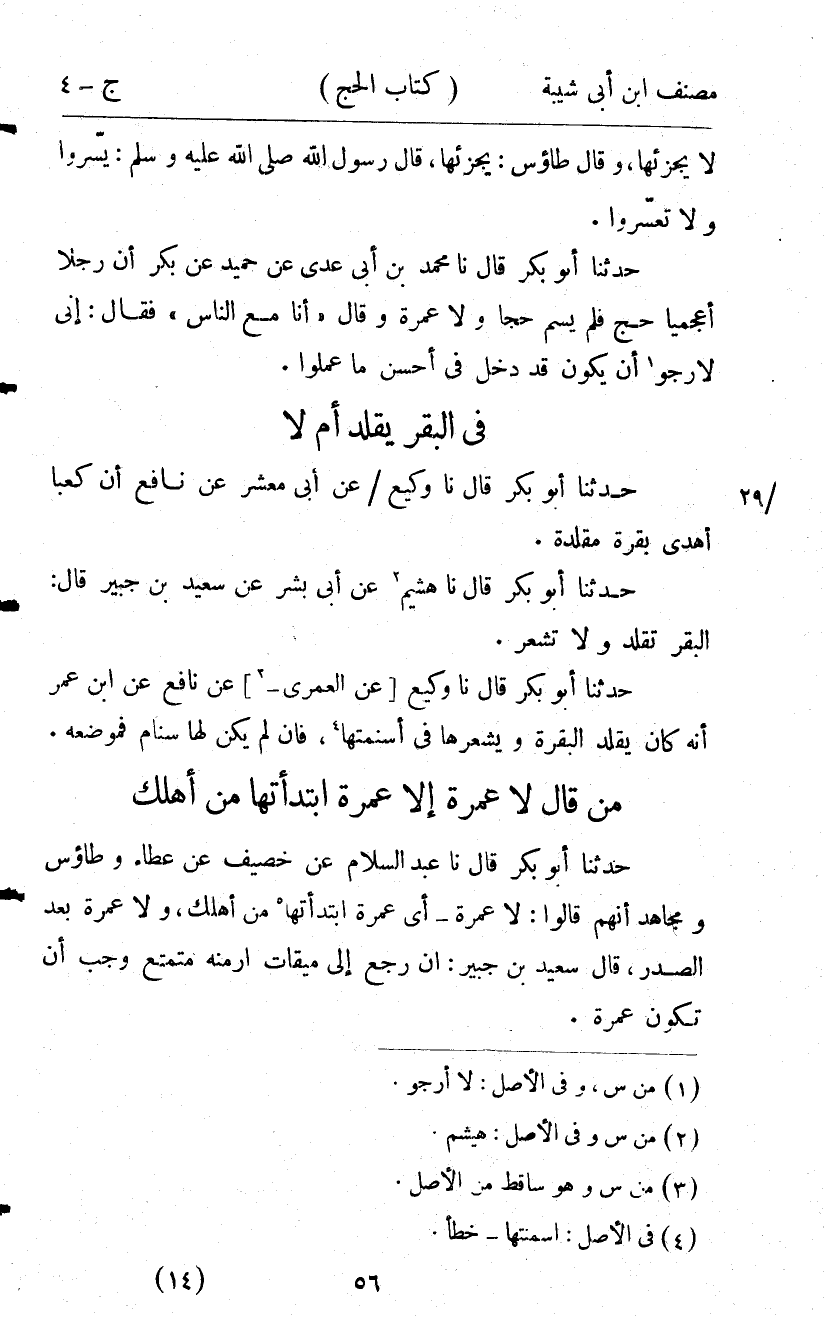 مصنف ابن أبى شيبة ( كتاب الحج ) ج - ٤
لا يجزئها، و قال طاؤس : يجزئها، قال رسول الله صلى الله عليه و سلم : يسّروا
و لا تعسّروا .
حدثنا أبو بكر قال نا محمد بن أبى عدى عن حميد عن بكر أن رجلا
أعجميا حج فلم يسم حجا و لا عمرة و قال « أنا مع الناس » فقال : إنى
لارجو١ أن يكون قد دخل فى أحسن ما عملوا .
فى البقر يقلد أم لا
حدثنا أبو بكر قال نا وكيع / عن أبى معشر عن نافع أن كعبا
/٢٩
أهدى بقرة مقلدة .
حدثنا أبو بكر قال نا هشيم٢ عن أبى بشر عن سعيد بن جبير قال:
البقر تقلد و لا تشعر .
حدثنا أبو بكر قال نا وكيع [ عن العمرى -٣ ] عن نافع عن ابن عمر
أنه كان يقلد البقرة و يشعرها فى أسنمتها٤ ، فان لم يكن لها سنام فموضعه .
من قال لا عمرة إلا عمرة ابتدأتها من أهلك
حدثنا أبو بكر قال نا عبد السلام عن خصيف عن عطاء و طاؤس
و مجاهد أنهم قالوا : لا عمرة - أى عمرة ابتدأتها٥ من أهلك، و لا عمرة بعد
الصدر ، قال سعيد بن جبير : ان رجع إلى ميقات ارمنه متمتع وجب أن
تكون عمرة .
(١) من س، و فى الأصل : لا أرجو .
(٢) من س و فى الأصل : هيشم .
(٣) من س و هو ساقط من الأصل .
(٤) فى الأصل : اسمنتها - خطأ .
٥٦ (١٤)